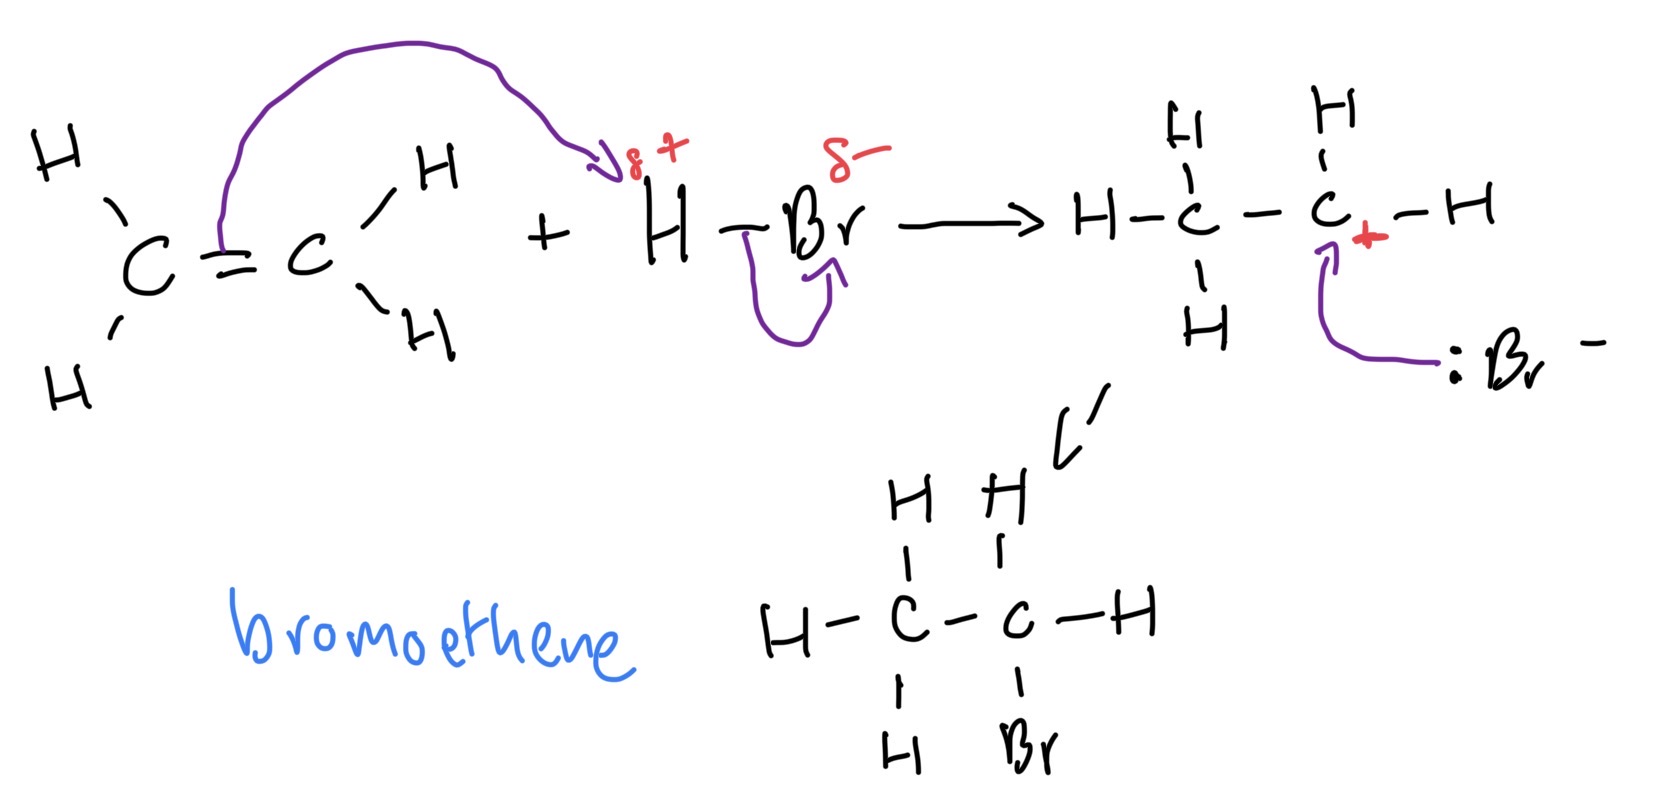 H H
C = C + H δ+ — Br δ- → H - C - C+ - H
H H H H H
:Br -
H H
H - C - C - H
H Br
bromoethene